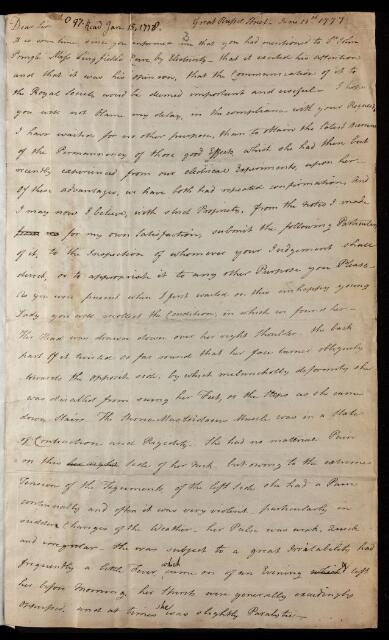 Dear Sir O 97. Read Jan. 15, 1778. Great Russel Street - June 11th 1777
It is some time since you informed me that you had mentioned to Sr John
Pringle Miss Lingfield's Cure by Electricity - that it excited his attention
and that it was his opinion, that the Communication of it to
the Royal Society would be deemed important and useful - I hope
you will not blame my delay, in the compliance with your Request,
I have waited for no other purpose, than to obtain the latest
of the Permanency of those good Effects, which she had then but
recently experienced from our electrical Experiments, upon her -
Of these advantages, we have both had repeated confirmation, And
I may now I believe, with strict Propriety, from the notes I made
for my own Satisfaction, submit the following Particulars
of it, to the Inspection of whomever your Judgement shall
direct, or to appropriate it to any other Purpose you Please -
As you were present when I first waited on this unhappy young
Lady you will recollect the Condition, in which we found her -
The Head was drawn down over her right Shoulder - the back
part of it twisted so far round that her face turned obliquely
towards the opposite side, by which melancholy deformity she
was disabled from seeing her Feet, or the Steps as she came
down Stairs. The Sterno-Mastoidaeus Muscle was in a State
of Contraction and Rigidity. She had no material Pain
on this side of her neck, but owing to the extreme
Tension of the Teguments, of the left Side she had a Pain
continually and often it was very violent particularly in
sudden Changes of the Weather - her Pulse was weak, quick
and irregular - She was subject to a great Irritability, had
frequently a little Fever, which came on of an Evening left
her before Morning, her Spirits were generally exceedingly
oppressed, and at times she was slightly Paralytic -